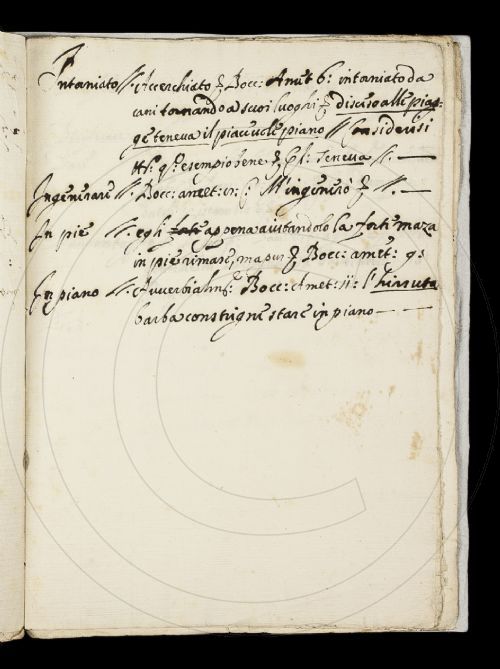 I
Intorniato //. Accerchiato Bocc: Amet 6: intorniato da
cani tornando a suoi luoghi disceso alle piag-
ge teneva il piacevole piano // Considerisi
q.o esempio bene Teneva //. —
Ingenerare //. Bocc: amet: M'ingenerò //. —
In pie //. egli forte appena aiutandolo la forte maza
in pie rimase, ma pur Bocc: amet: 93
In piano //. Avverbialm.e Bocc: Amet: ii: l'hirsuta
barba constrigne stare in piano — —